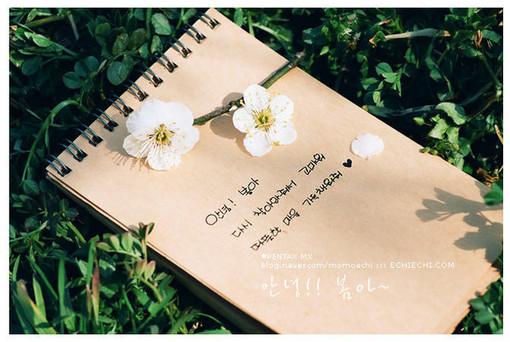 안녕! 봄아
다시 찾아와줘서 고마워
따뜻한 마음 가득 채워줘 ♥
*PENTAX MX
blog.naver.com/momoechi ::: ECHIECHI.COM
안녕!! 봄아~